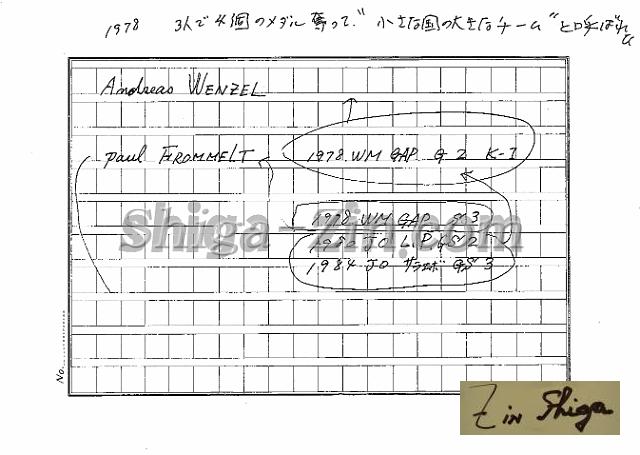 1978 3人で4個のメダル奪って."小さな国の大きなチーム"と呼ばれ
Andreas WENZEL
Paul FROMMELT
1978.WM GAP G 2 K-1
1978 WM GAP S 3
1980 JO L.P GS 2
1984 JO サラエボ GS 3
shiga-zin.com
No.
Z in Shiga